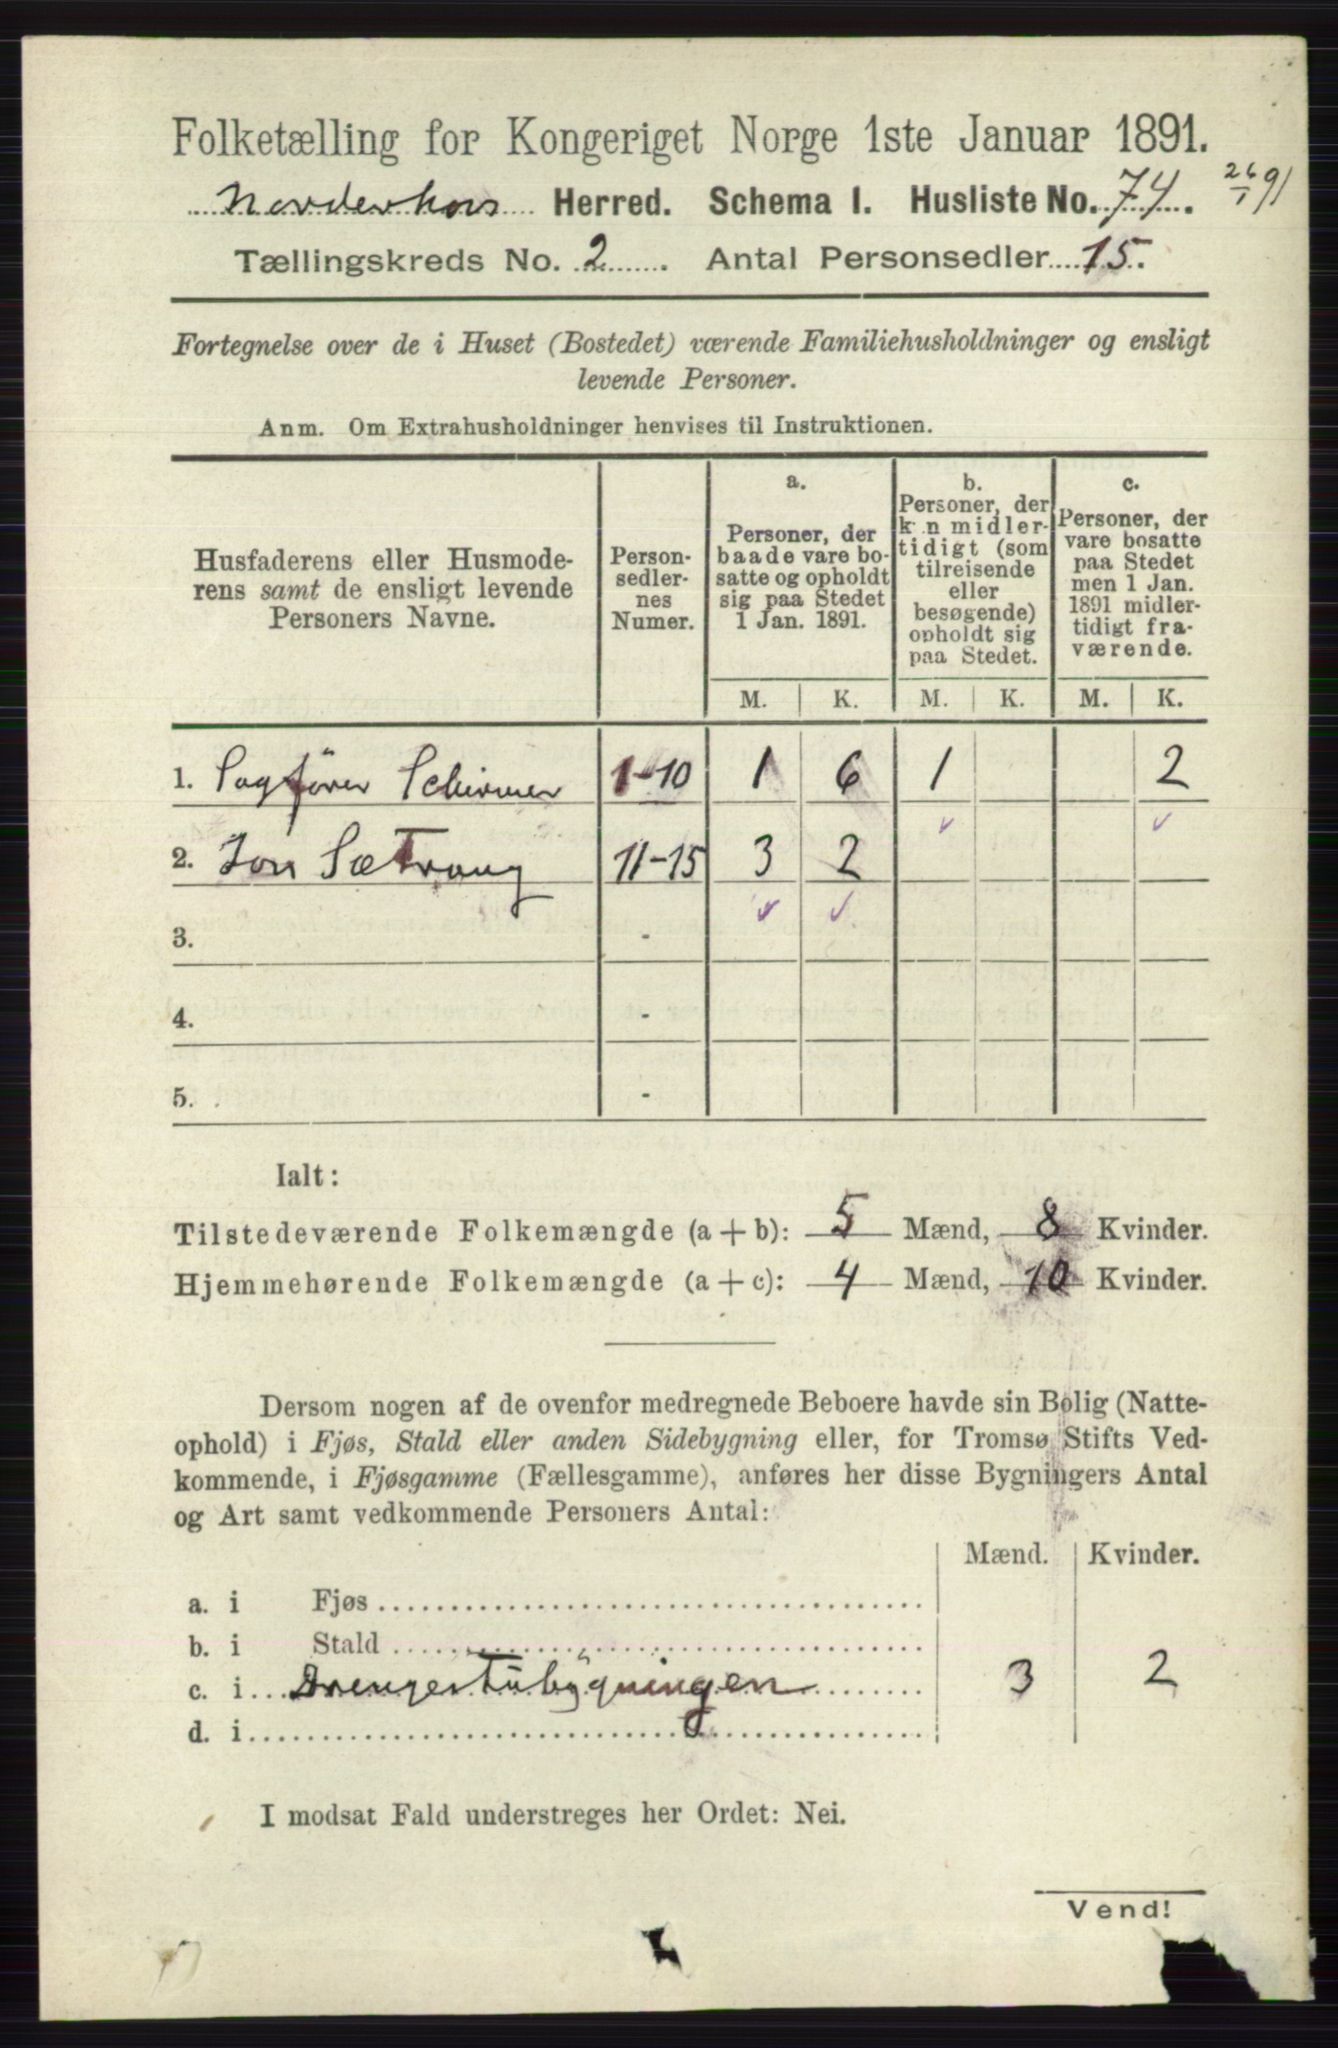 Folketælling for Kongeriget Norge 1ste Januar 1891.
Norderhovs Herred. Schema I. Husliste No. 74. 26/1 91
Tællingskreds No. 2. Antal Personsedler 15.
Fortegnelse over de i Huset (Bostedet) værende Familiehusholdninger og ensligt
levende Personer.
Anm. Om Extrahusholdninger henvises til Instruktionen.
Husfaderens eller Husmode-
rens samt de ensligt levende
Personers Navne.
Person-
sedler-
nes
Numer.
a.
Personer, der
baade vare bo-
satte og opholdt
sig paa Stedet
1 Jan. 1891.
b.
Personer, der
kun midler-
tidigt (som
tilreisende
eller
besøgende)
opholdt sig
paa Stedet.
c.
Personer, der
vare bosatte
paa Stedet
men 1 Jan.
1891 midler-
tidigt fra-
værende.
M. K. M. K. M. K.
1. Sagfører Schirmer 1-10 1 6 1 2
2. Jon Sætrang 11-15 3 2
3. -
4. -
5. -
Ialt:
Tilstedeværende Folkemængde (a + b): 5 Mænd, 8 Kvinder.
Hjemmehørende Folkemængde (a + c): 4 Mænd, 10 Kvinder.
Dersom nogen af de ovenfor medregnede Beboere havde sin Bolig (Natte-
ophold) i Fjøs, Stald eller anden Sidebygning eller, for Tromsø Stifts Ved-
kommende, i Fjøsgamme (Fællesgamme), anføres her disse Bygningers Antal
og Art samt vedkommende Personers Antal:
Mænd. Kvinder.
a. i Fjøs
b. i Stald
c. i Drengestubygningen 3 2
d. i
I modsat Fald understreges her Ordet: Nei.
Vend!